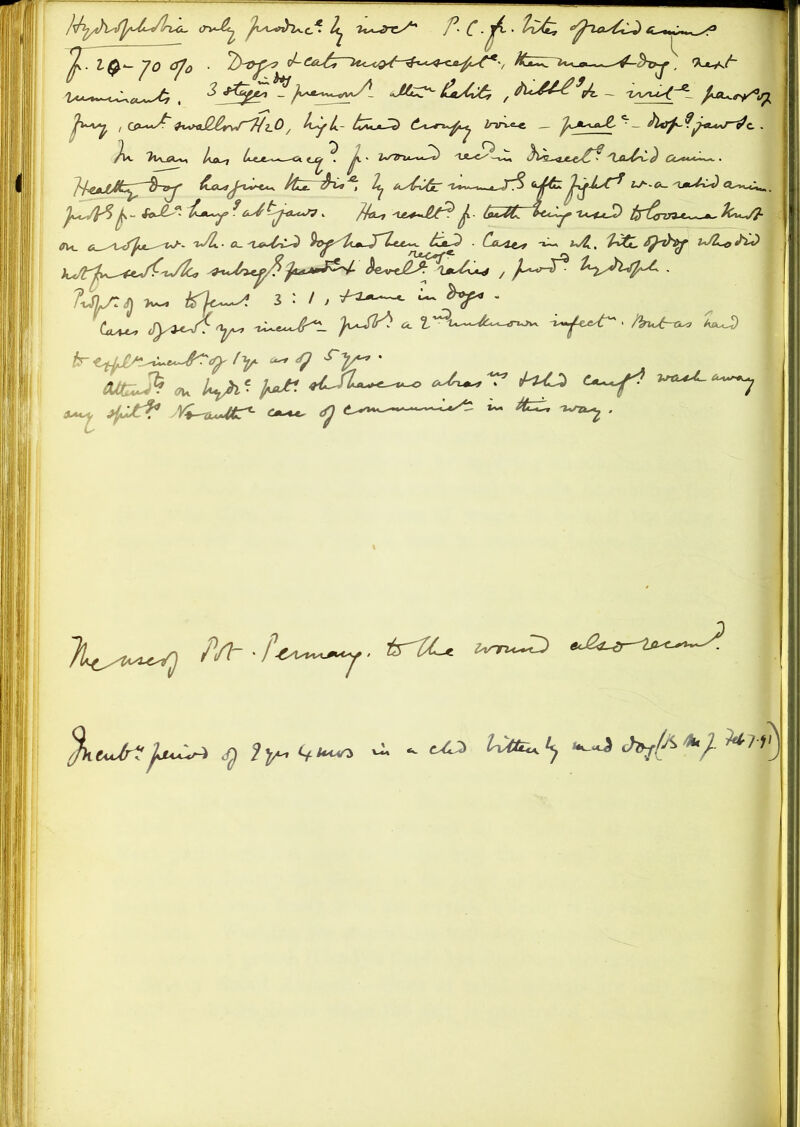 Hydrophobia only produc.d by inoc.n P.C. fr. bites of rabid anim.s
fr. 20 – 70 o/o . Dogs & cats most suscept.e, then man & dog, next
ruminants. 3 stages in dog – premon.y – alter.n habits, &c –
fury, can't swallow H2O, high-toned croupy voice – paral.c – drop.g jaw &c.
In man has been acq.d fr. wound rec.d in dissect.g rabid anim.
Healthy dog has given the dis.e, by a bite immed.y after fight w. a rabid anim.
prob.y fr. sal.a hang.g ab.t jaws. Has result.d fr. teeth being used to loosen a knot
on a rope w. wh. a rabid dog had been tied. Cases in wh. bite of dog who did
not for sev.l wks subseq.y develop recog.e rabies, prod.d hydroph.
Prop.n of ms to fem.s 3 : 1, & same in dogs.
Cases of sev.l yrs incub.n prob.y a 2nd unknown infect.n. But as hard
to expl.n incub.n of 1 yr as of 5 yrs.
Attend.ts on hydr.c pat.s sh.d have no abras.ns & sh.d caref.y wash away
any spit.e No auth.c case of communic.n in this way.
The use of Pot. Permang. to the wound also recom.d
Incub.n period of 2 yrs 4 mos in a child bitten by mad dog (B M J. Feb 7. 91)